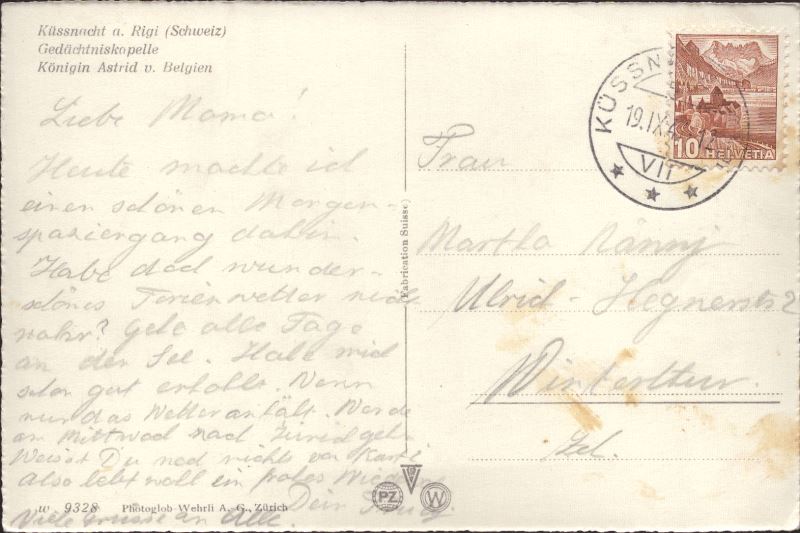 Küssnacht a. Rigi (Schweiz)
Gedächtniskapelle
Königin Astrid v. Belgien
Liebe Mama!
Heute machte ich
einen schönen Morgen-
spaziergang dahin.
Habe doch wunder-
schönes Ferienwetter nicht
wahr? Gehe alle Tage
an den See. Habe mich
schon gut erholt. Wenn
nur das Wetter anhält. Werde
am Mittwoch nach Zürich gehn.
Weisst Du noch nichts von Karli
Also lebt woll ein frohes
Dein
Viele Grüsse an Alle.
w 9328 Photoglob-Wehrli A.-G., Zürich
Fabrication Suisse
PZ
W
KÜSSN
19.IX.4
12
VII
10 HELVETIA
Frau
Martha Nänny
Ulrich-Hegnerstr 2
Winterthur.